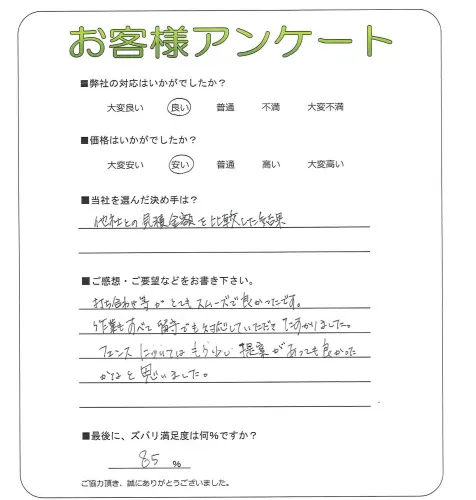 お客様アンケート
■弊社の対応はいかがでしたか?
大変良い 良い 普通 不満 大変不満
■価格はいかがでしたか?
大変安い 安い 普通 高い 大変高い
■当社を選んだ決め手は?
他社との見積金額を比較した結果
■ご感想・ご要望などをお書き下さい。
打ち合わせ等がとてもスムーズで良かったです。
作業もすべて留守でも対応していただきたすかりました。
フェンスについてはもう少し提案があっても良かった
かなと思いました。
■最後に、ズバリ満足度は何%ですか?
85 %
ご協力頂き、誠にありがとうございました。